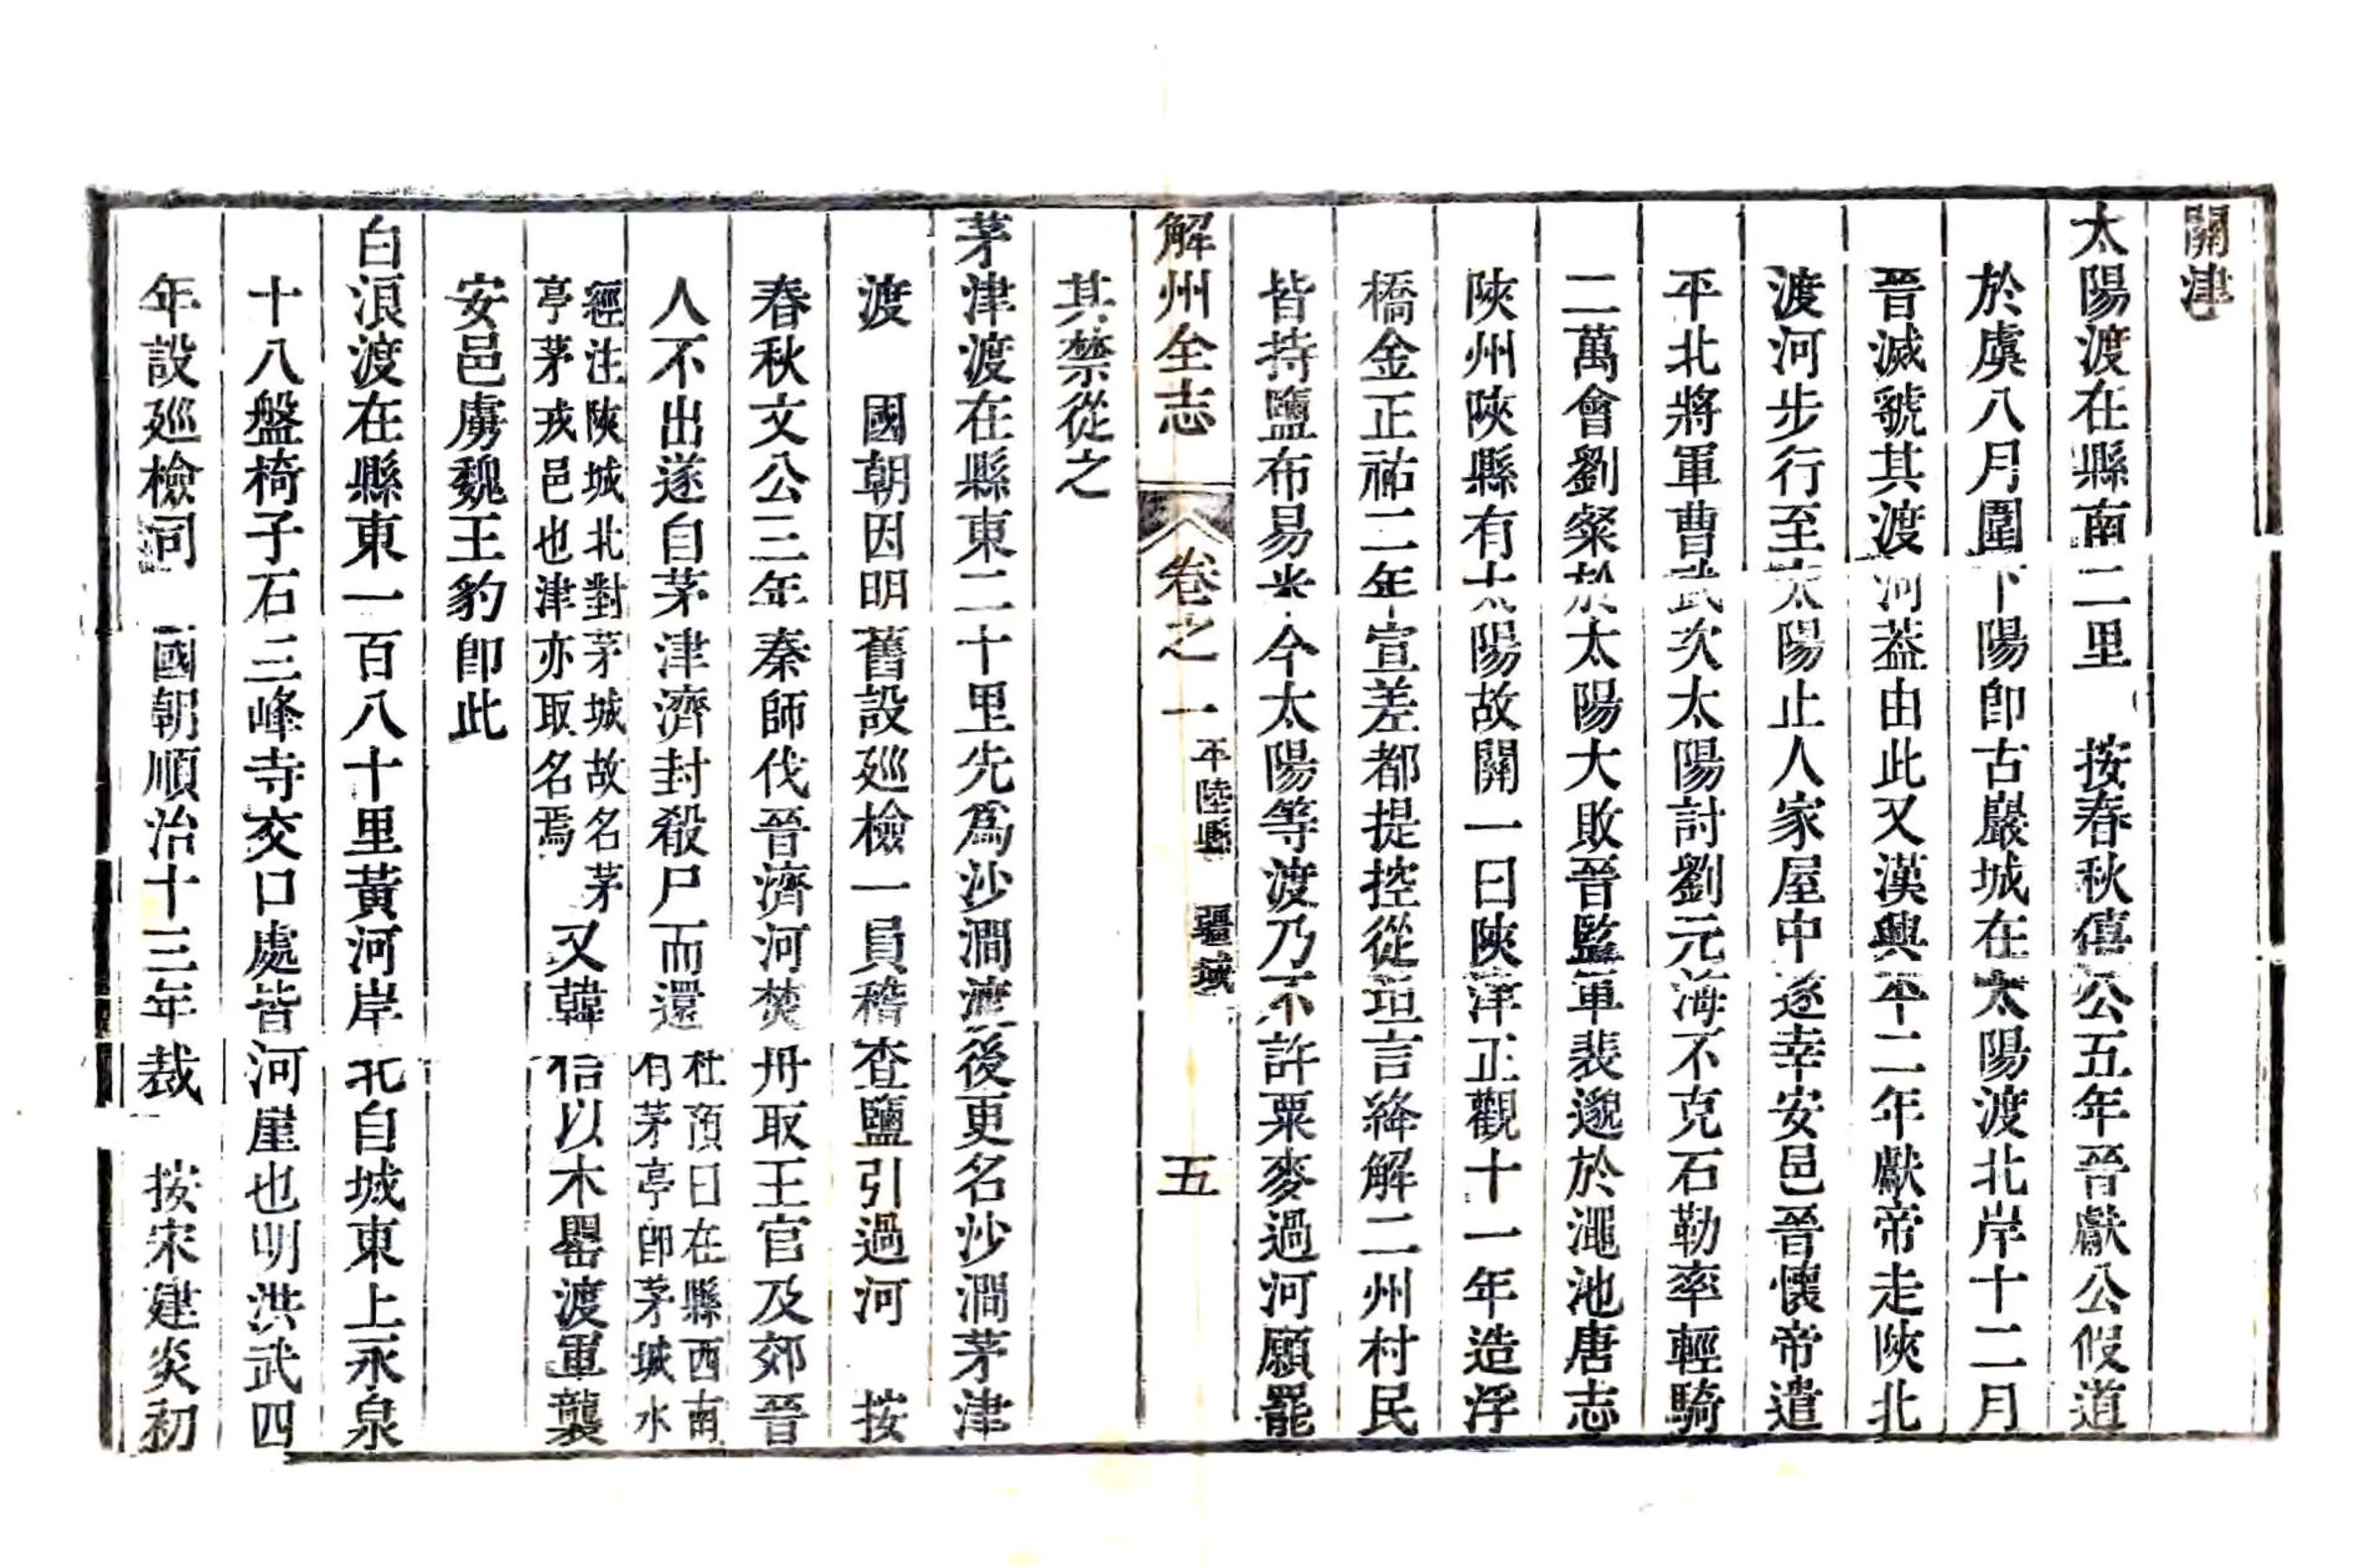 關津
太陽渡在縣南二里　按春秋僖公五年晉獻公假道
於虞八月圍下陽卽古巖城在太陽渡北岸十二月
晉滅虢其渡河葢由此又漢興平二年獻帝走陝北
渡河步行至太陽止人家屋中遂幸安邑晉懷帝遣
平北將軍曹武次太陽討劉元海不克石勒率輕騎
二萬會劉粲於太陽大敗晉監軍裴邈於澠池唐志
陝州陝縣有太陽故關一曰陝津正觀十一年造浮
橋金正祐二年宣差都提控從坦言絳解二州村民
皆持鹽布易米今太陽等渡乃不許粟麥過河願罷
解州全志　卷之一　平陸縣　疆域　五
其禁從之
茅津渡在縣東二十里先爲沙澗渡後更名沙澗茅津
渡　國朝因明舊設廵檢一員稽查鹽引過河　按
春秋文公三年秦師伐晉濟河焚舟取王官及郊晉
人不出遂自茅津濟封殽尸而還杜預曰在縣西南有茅亭卽茅城水
經注陝城北對茅城故名茅亭茅戎邑也津亦取名焉又韓信以木罌渡軍襲
安邑虜魏王豹卽此
白浪渡在縣東一百八十里黃河岸北自城東上永泉
十八盤椅子石三峰寺交口處皆河崖也明洪武四
年設廵檢司　國朝順治十三年裁　按宋建炎初